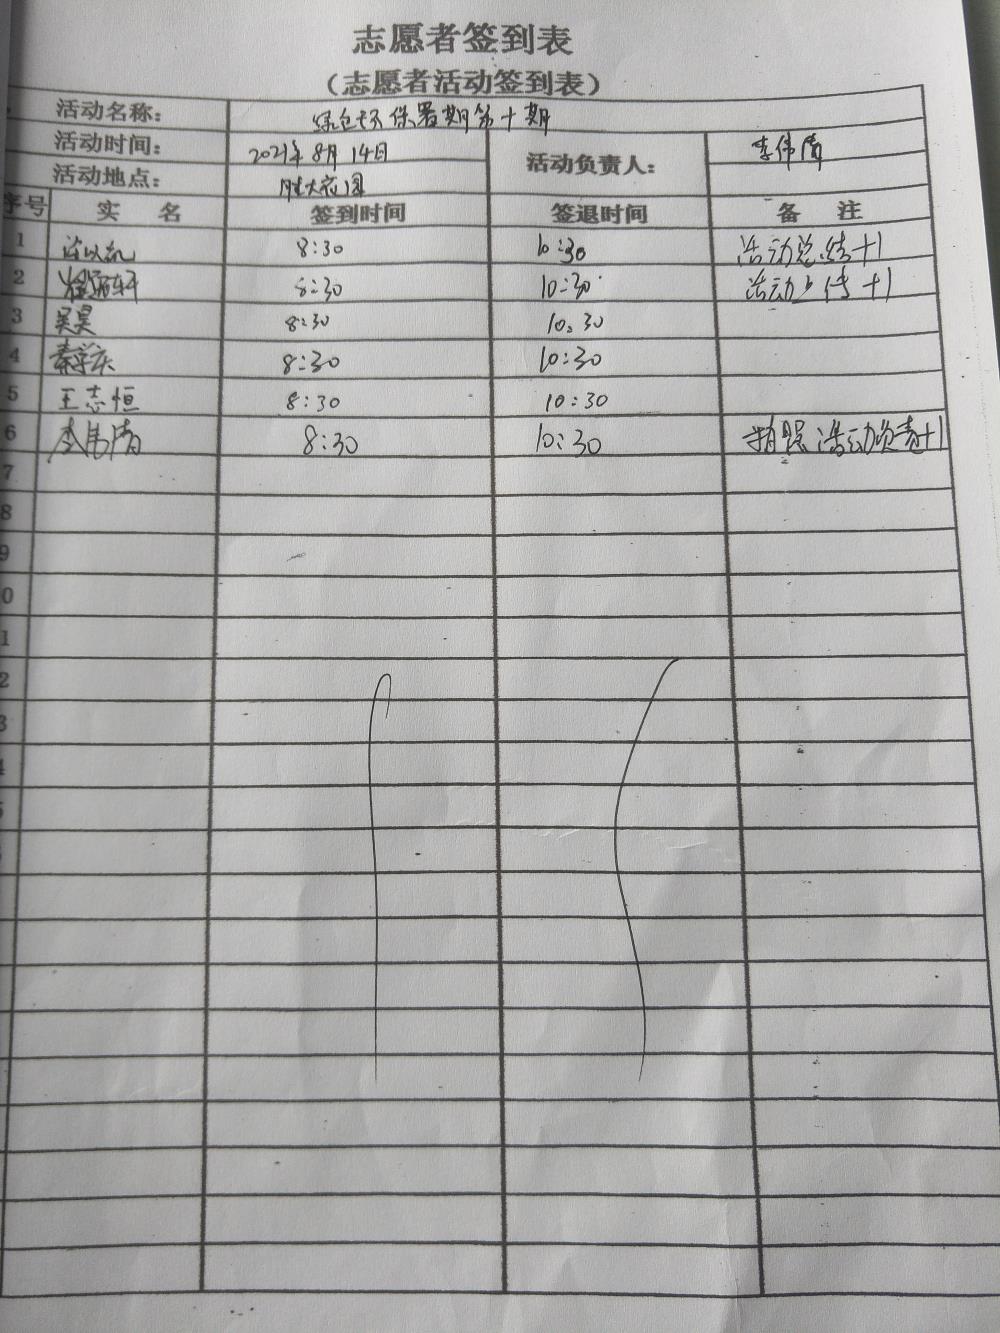 志愿者签到表
（志愿者活动签到表）
活动名称： 绿色环保暑期第十期
活动时间： 2021年8月14日 活动负责人： 李伟清
活动地点： 胜大花园
序号 实 名 签到时间 签退时间 备 注
1 8:30 10:30 活动总结+1
2 8:30 10:30 活动上传+1
3 吴昊 8:30 10:30
4 秦学庆 8:30 10:30
5 王志恒 8:30 10:30
6 李伟清 8:30 10:30 拍照 活动负责+1
7
8
9
0
1
2
3
4